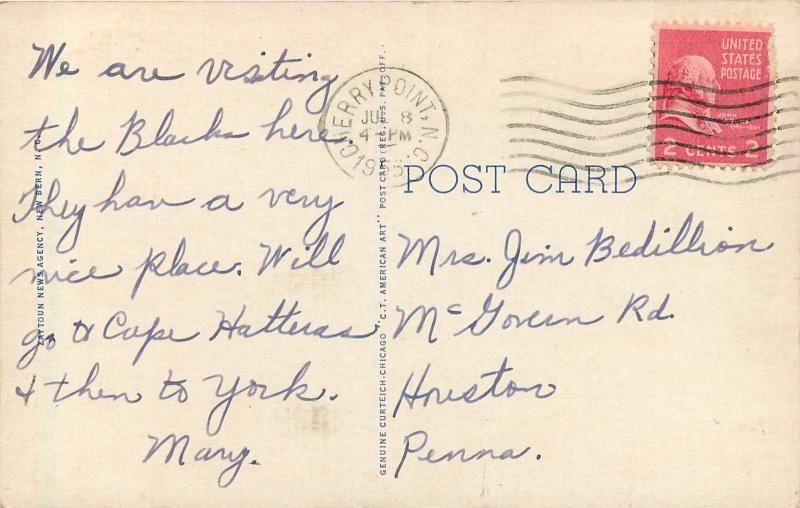 We are visiting
the Blacks here.
They have a very
nice place. Will
go to Cape Hatteras
& then to York.
Mary.
ZAYTOUN NEWS AGENCY, NEW BERN, N.C.
GENUINE CURTEICH-CHICAGO "C.T. AMERICAN ART" POST CARD (REG. U.S. PAT. OFF.)
CHERRY POINT, N.C.
JUL 8
4 PM
1955
UNITED
STATES
POSTAGE
JOHN ADAMS
2 CENTS 2
POST CARD
Mrs. Jim Bedillion
McGovern Rd.
Houston
Penna.